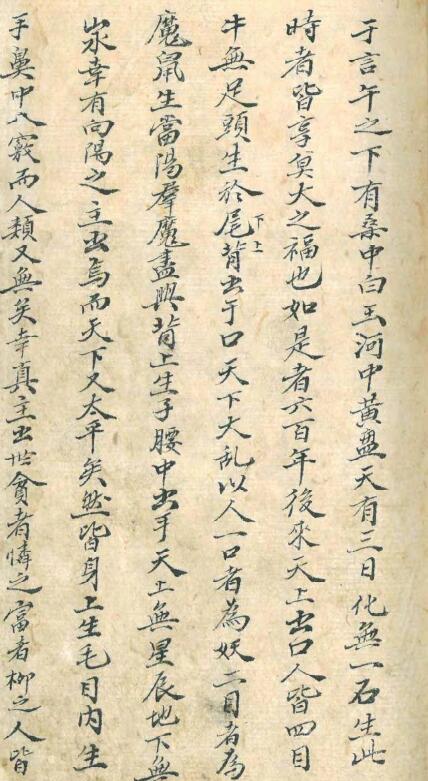 于言午之下有桑中白玉河中黃盤天有三日化無一石生此
時者皆享莫大之福也如是者六百年後來天上出口人皆四目
牛無足頭生於尾背出于口天下大乱以人一口者為妖二目者為
下上
魔鼠生當陽群魔盡興背上生子腰中出手天上無星辰地下無
氷幸有向陽之主出焉而天下又太平矣然皆身上生毛目内生
手鼻中八竅而人類又無矣幸真主出世貧者憐之富者柳之人皆